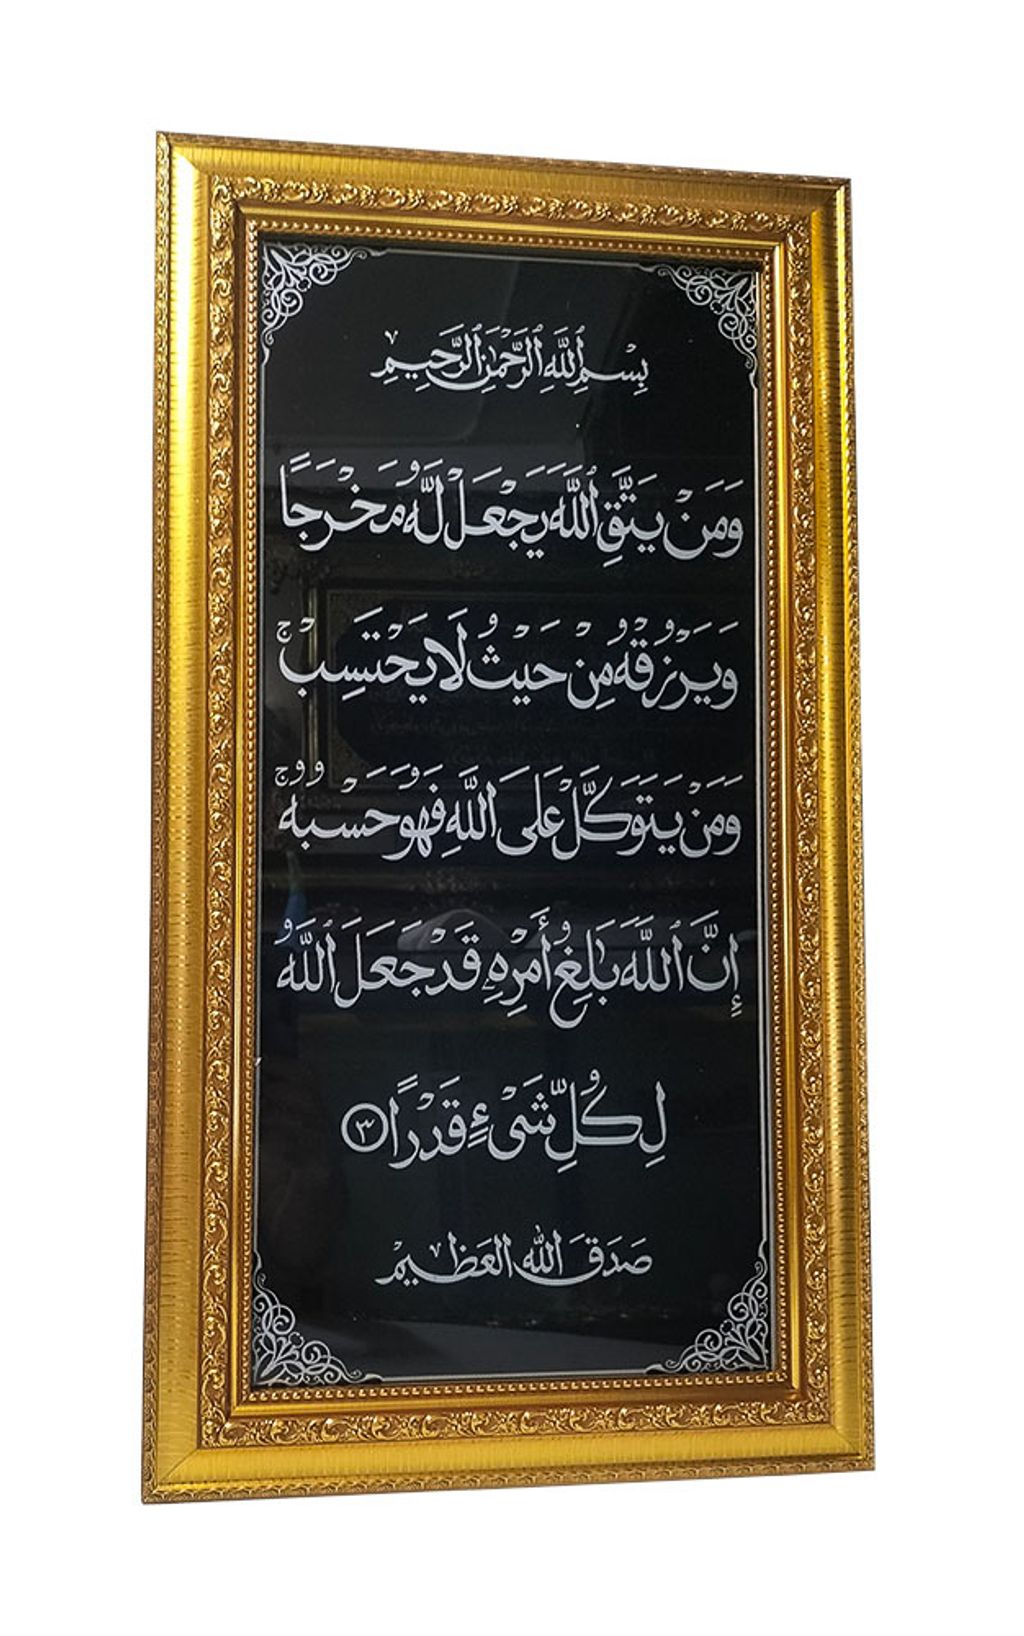 بِسْمِ اللَّهِ الرَّحْمَٰنِ الرَّحِيمِ
وَمَنْ يَتَّقِ اللَّهَ يَجْعَلْ لَهُ مَخْرَجًا
وَيَرْزُقْهُ مِنْ حَيْثُ لَا يَحْتَسِبْ ۚ
وَمَنْ يَتَوَكَّلْ عَلَى اللَّهِ فَهُوَ حَسْبُهُ ۚ
إِنَّ اللَّهَ بَالِغُ أَمْرِهِ قَدْ جَعَلَ اللَّهُ
لِكُلِّ شَيْءٍ قَدْرًا ٣
صَدَقَ اللهُ العَظِيمْ